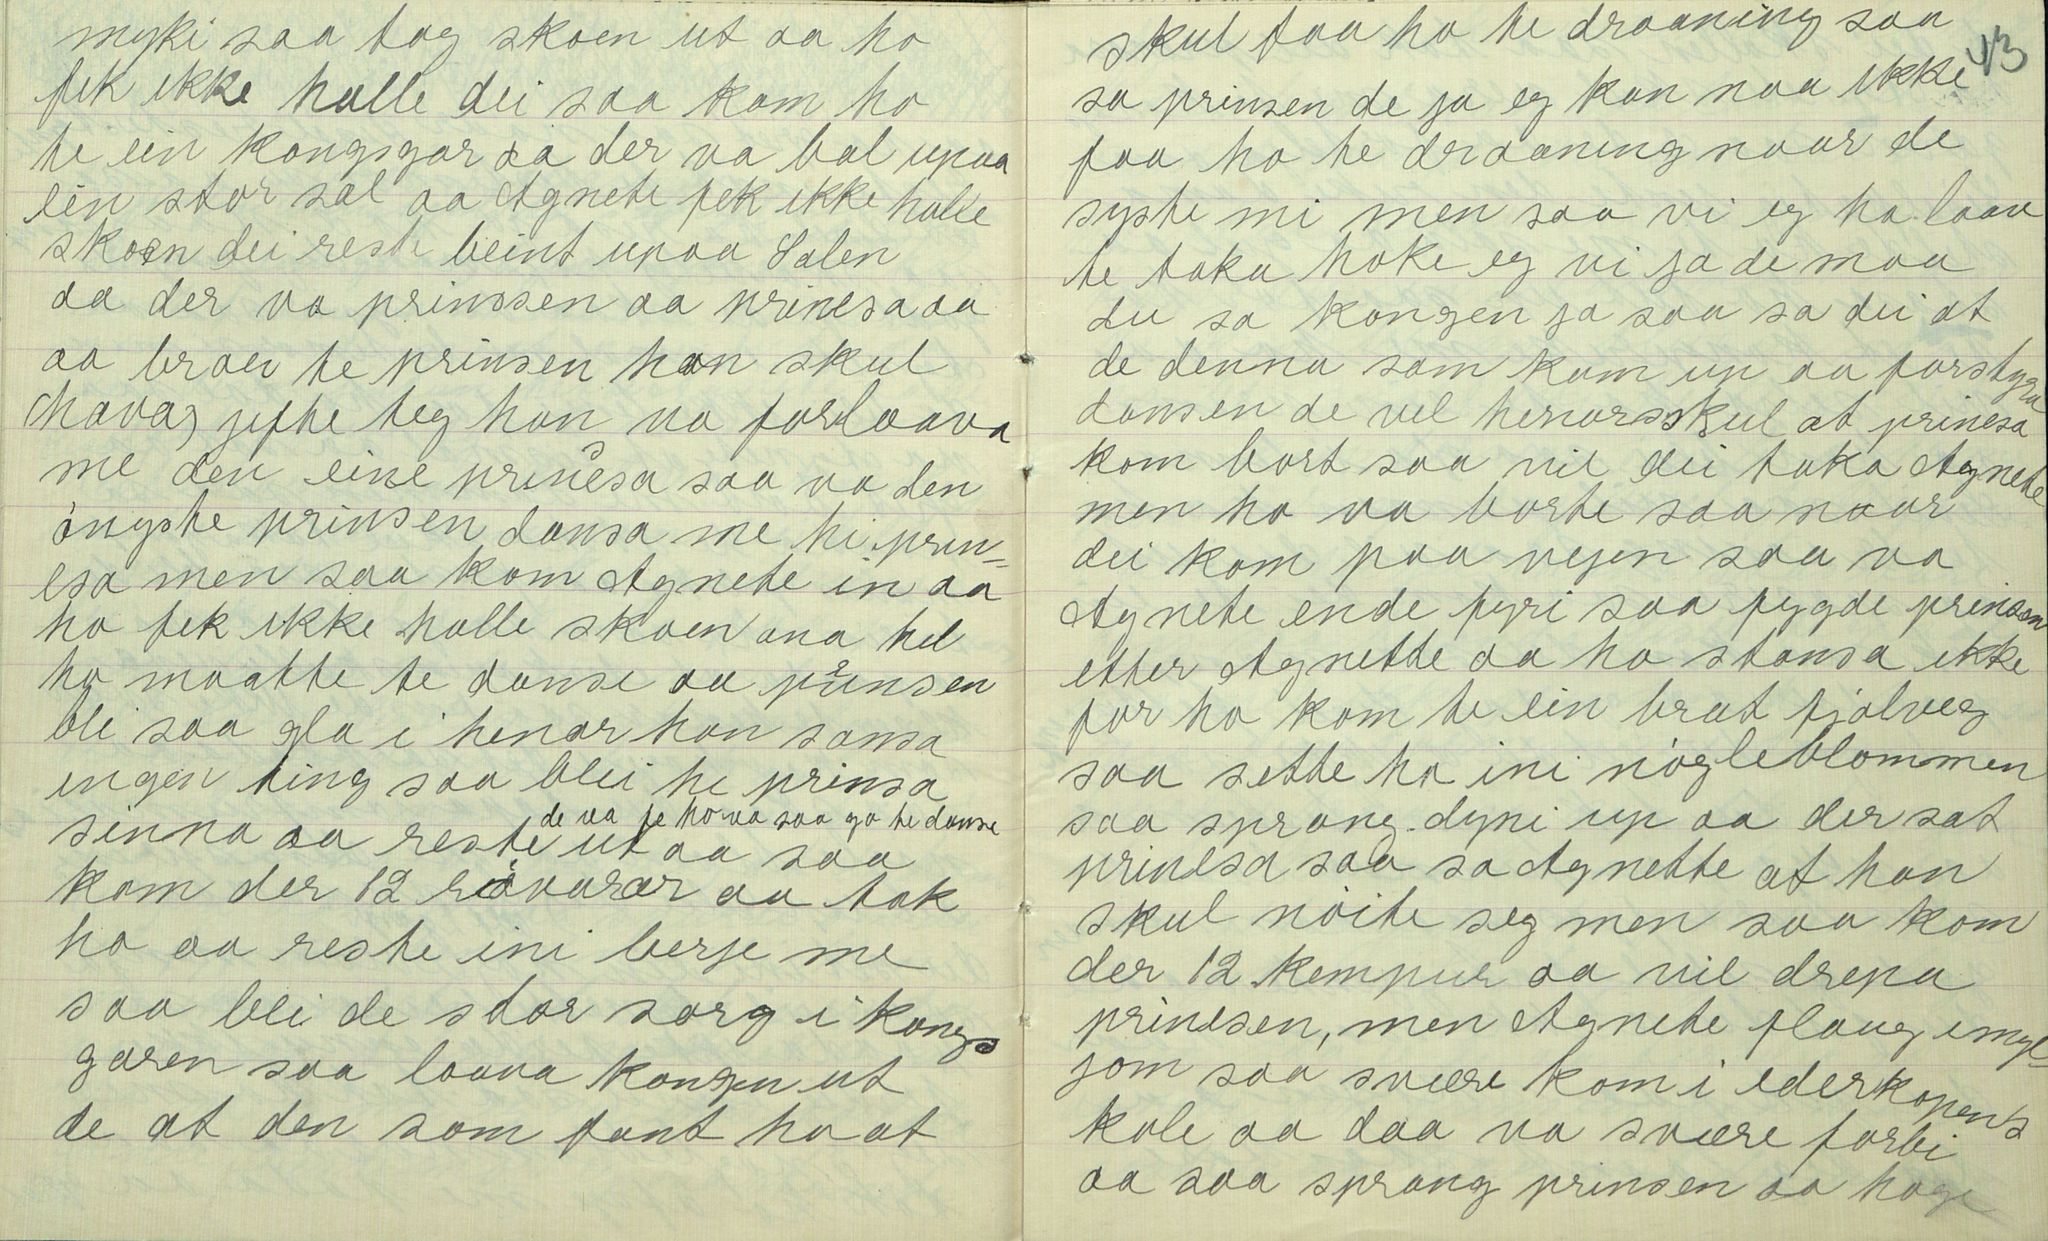 myki saa tog skoen ut aa ho
fek ikke halle dei saa kom ho
te ein kongsgar sa der va bal upaa
ein stor sal aa Agnete fek ikke halle
skoen dei reste beint upaa Salen
aa der va prinssen aa prinesa aa
aa broer te prinsen han skul
(hava) jifte teg han va forlaava
me den eine prinesa saa va den
óngste prinsen dansa me hi prin=
esa men saa kom Agnete in aa
ho fek ikke halle skoen ana hel
ho maatte te danse aa prinsen
bli saa gla i henar han sansa
ingen ting saa blei he prinsa
de va fe ho va saa go te danse
sinna aa reste ut aa saa
kom der 12 róvarar aa tok
ho aa reste ini berje me
saa bli de stor sorg i kongs
garen saa laava kongen ut
de at den som fant ho at
43
skul faa ho te draaning saa
sa prinsen de ja eg kan naa ikke
faa ho te draaning naar de
syste mi men saa vi eg ha laav
te taka hoke eg vi ja de maa
du sa kongen ja saa sa dei at
de denna som kom up aa forstyra
dansen de vel henars skul at prinesa
kom bort saa vil dei taka Agnete
men ho va borte saa naar
dei kom paa vejen saa va
Agnete ende fyri saa fygde prinsen
etter Agnette aa ho stansa ikke
for ho kom te ein brat fjalveg
saa sette ho ini nógleblommen
saa sprang dyni up aa der sat
prinesa saa sa Agnette at han
skul nóite seg men saa kom
der 12 kempur aa vil drepa
prinesen, men Agnete flaug imyl=
jom saa svære kom i ederkopens
kole aa daa va svære forbi
aa saa sprang prinsen aa hoge